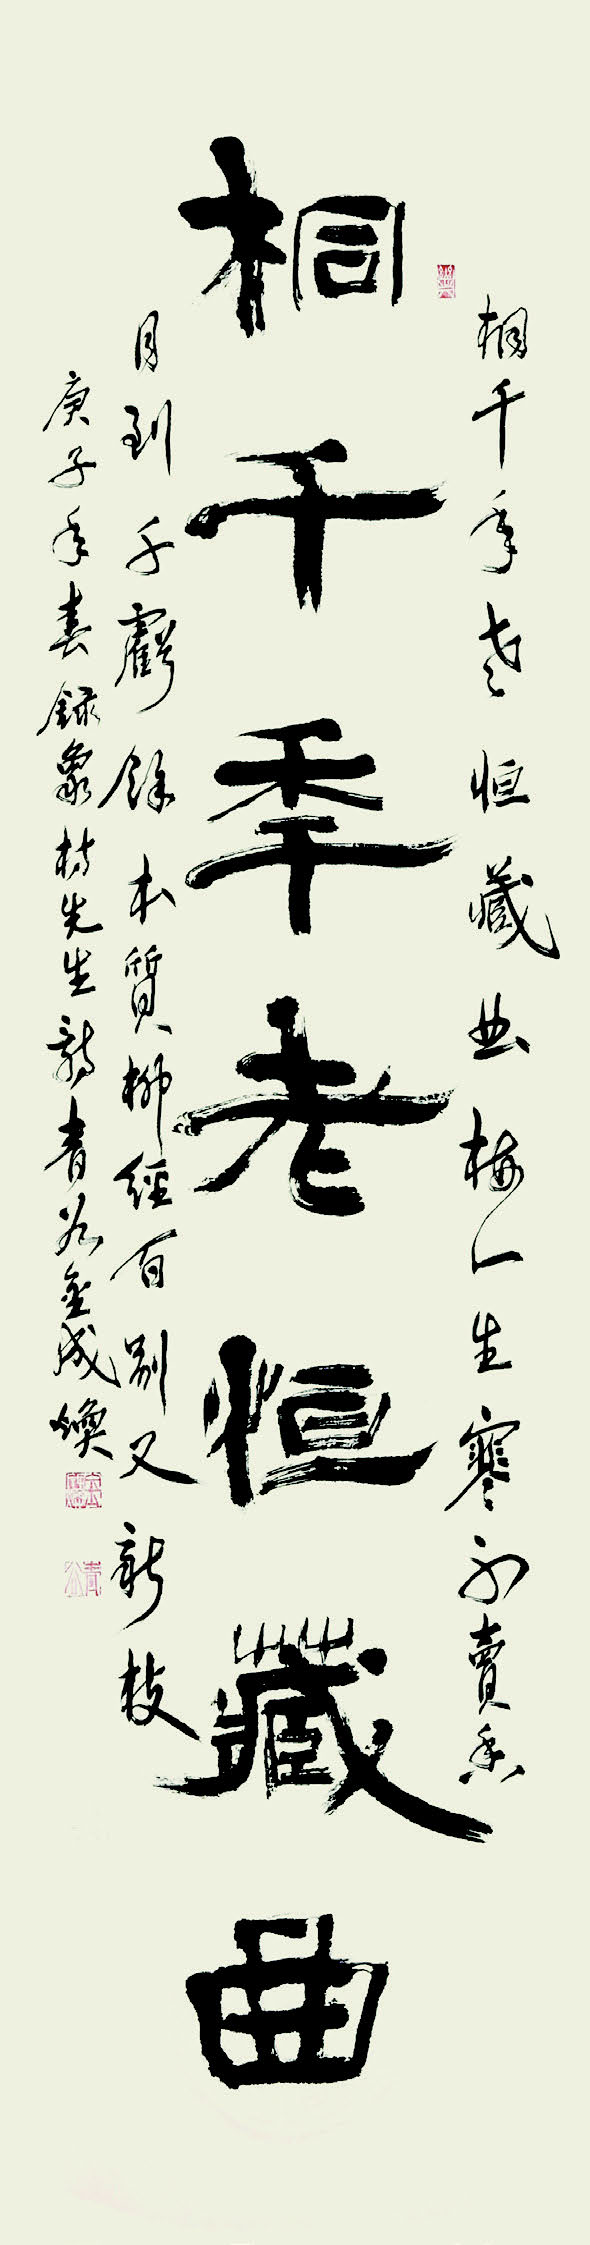 桐千秊老恒藏曲
桐千年老恒藏曲梅一生寒不賣香
月到千虧餘本質柳經百別又新枝
庚子年春錄象村先生詩青谷金成煥